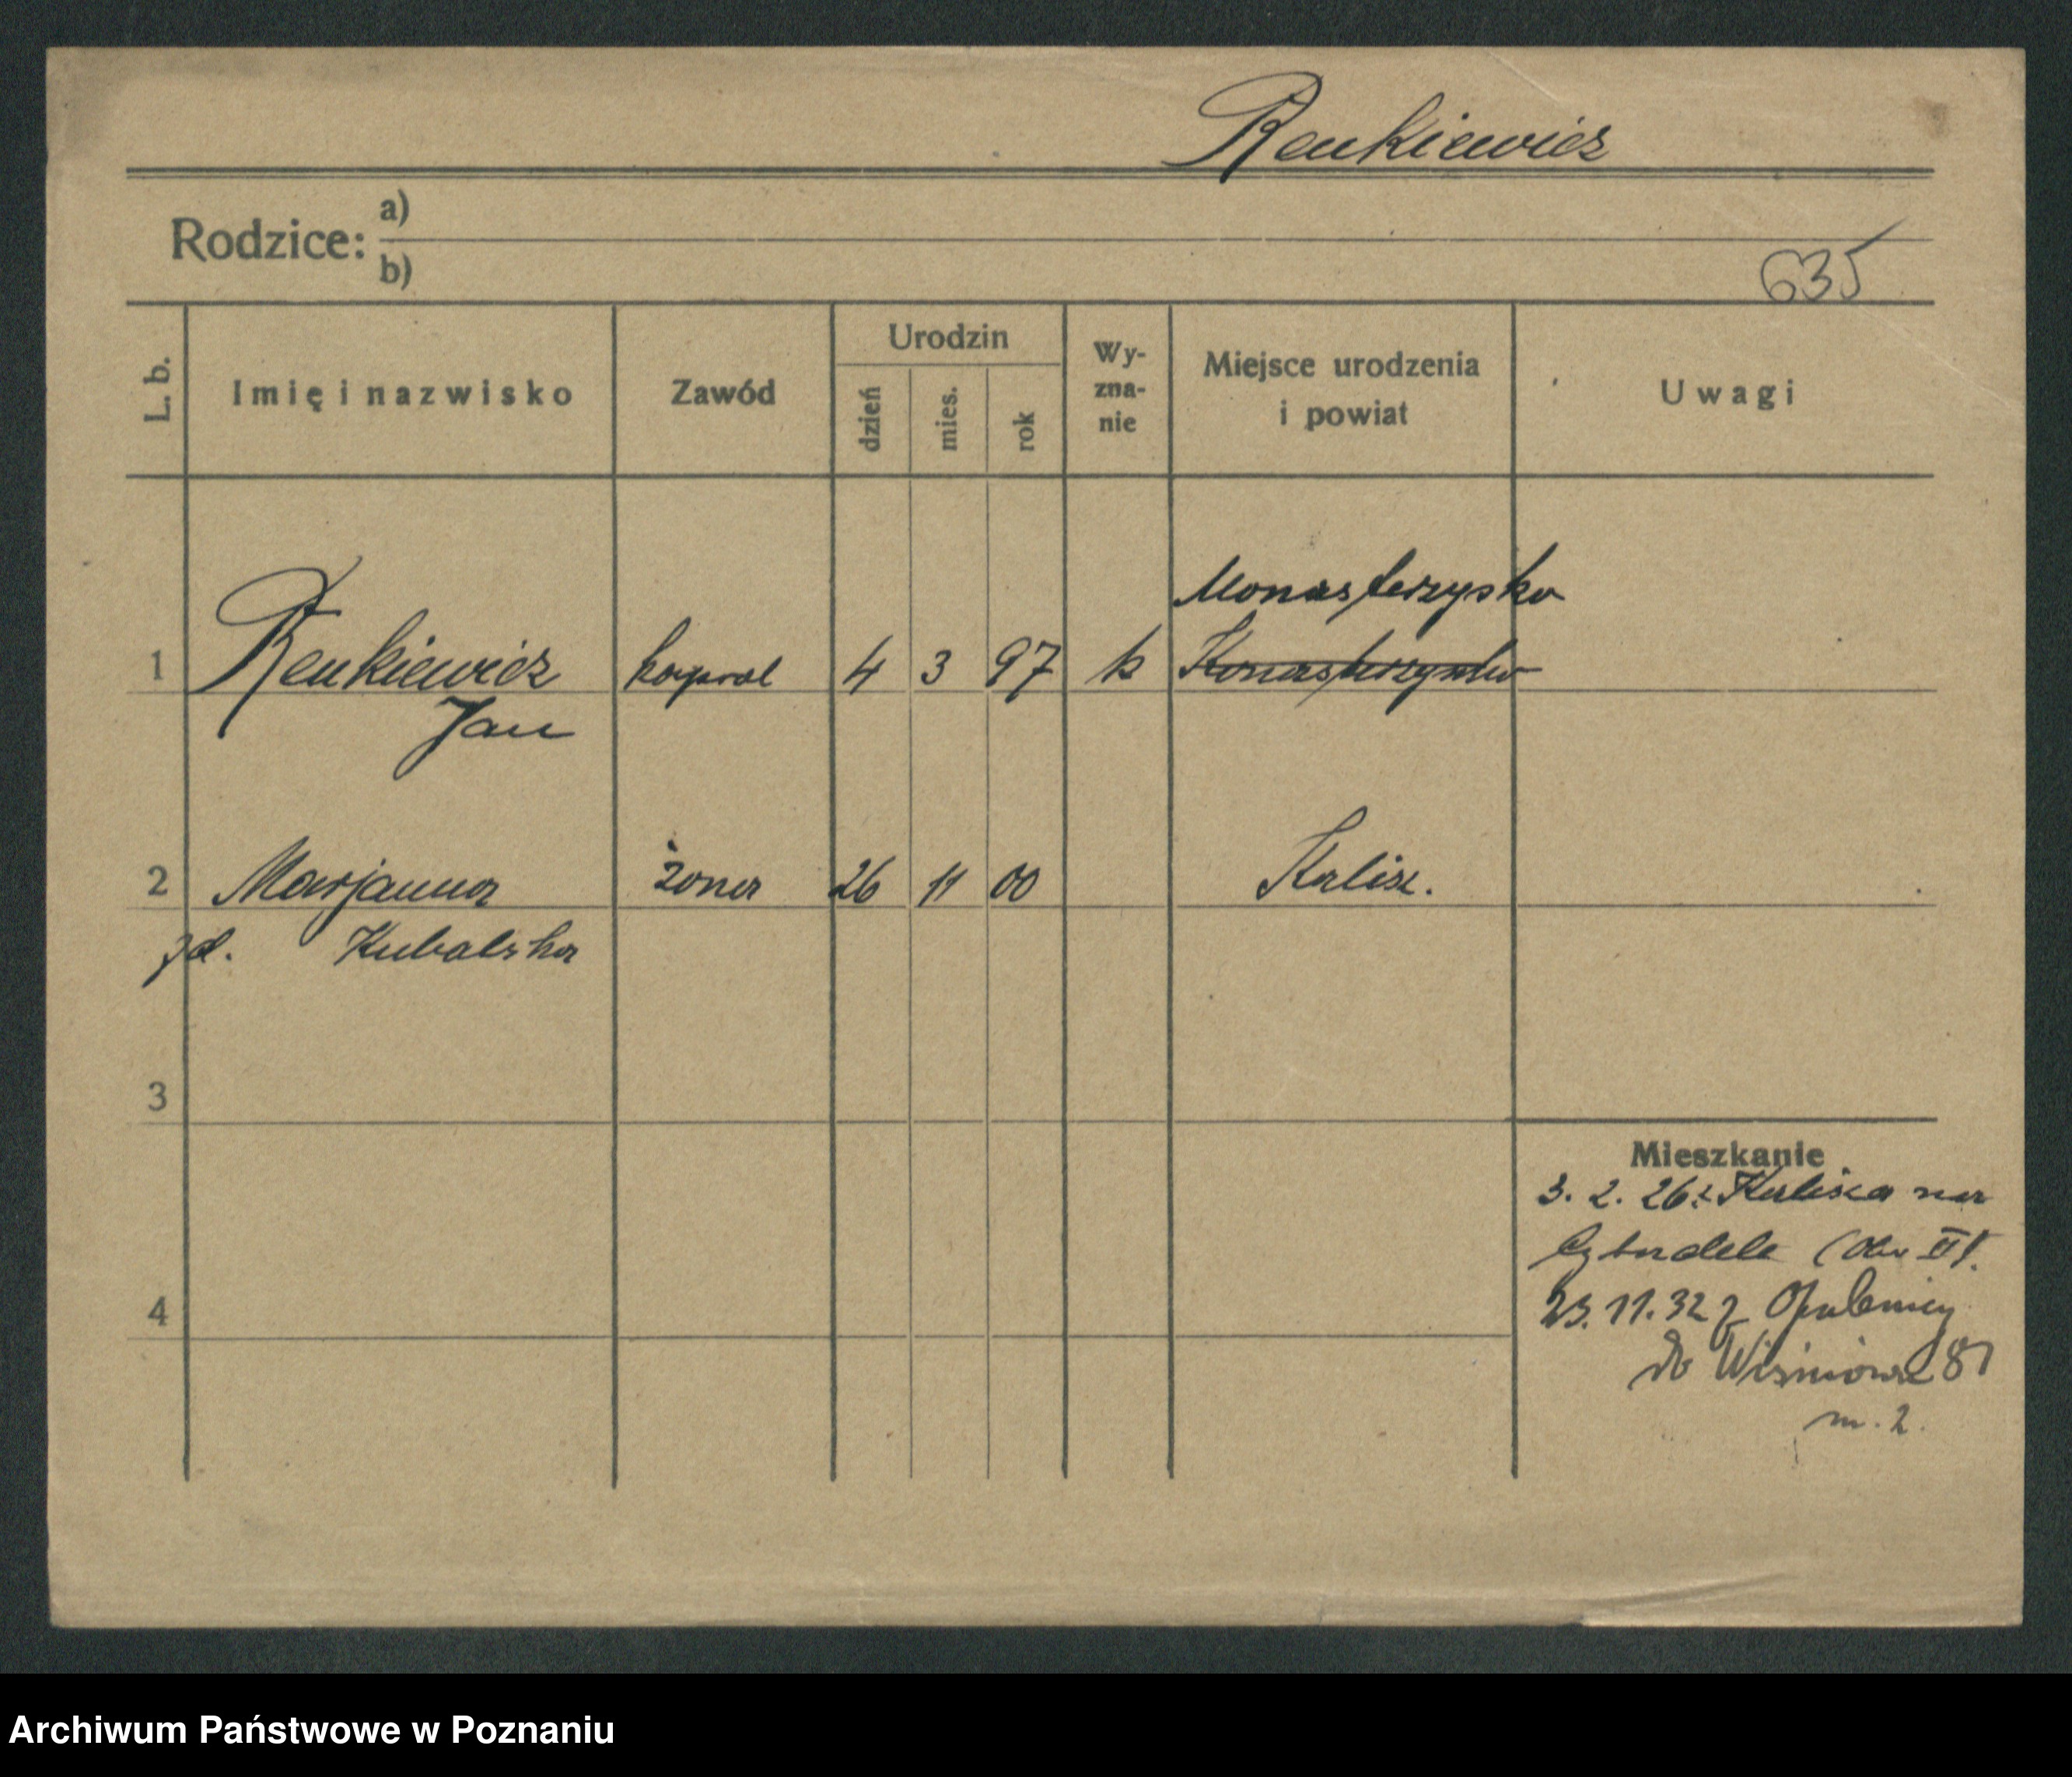 Renkiewicz
Rodzice:
a)
b)
635
L. b.
Imię i nazwisko
Zawód
Urodzin
dzień
mies.
rok
Wy-
zna-
nie
Miejsce urodzenia
i powiat
Uwagi
Monasterzysko
1 Renkiewicz kapral 4 3 97 k Konasterzysko
Jan
2 Marjanna żona 26 11 00 Kalisz.
zd. Kubalska
3
4
Mieszkanie
3. 2. 26 z Kalisza na
Cytadele (Ob. II).
23.11.32 z Opalenicy
do Wiśniowa 81
m. 2.
Archiwum Państwowe w Poznaniu